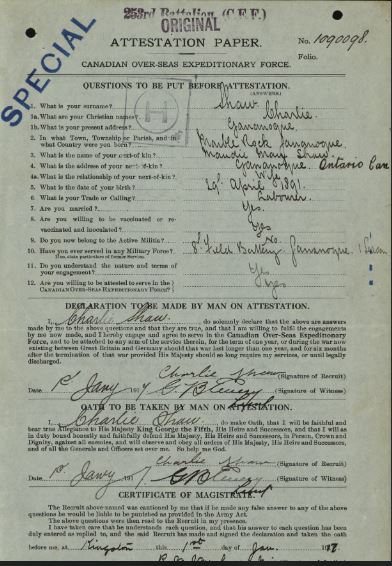 253rd Battalion (C.E.F.)
ORIGINAL
SPECIAL
ATTESTATION PAPER.
No. 1090098.
Folio.
CANADIAN OVER-SEAS EXPEDITIONARY FORCE.
QUESTIONS TO BE PUT BEFORE ATTESTATION.
(ANSWERS)
1. What is your surname? Shaw
1a. What are your Christian names? Charlie.
1b. What is your present address? Gananoque.
2. In what Town, Township or Parish, and in what Country were you born? Marble Rock Gananoque.
3. What is the name of your next-of-kin? Maudie May Shaw.
4. What is the address of your next-of-kin? Gananoque. Ontario Can
4a. What is the relationship of your next-of-kin? Wife
5. What is the date of your birth? 29th April 1891.
6. What is your Trade or Calling? Labourer.
7. Are you married? Yes.
8. Are you willing to be vaccinated or re-vaccinated and inoculated? Yes
9. Do you now belong to the Active Militia? No.
10. Have you ever served in any Military Force? 8th Field Battery Gananoque. 1
If so, state particulars of former Service.
11. Do you understand the nature and terms of your engagement? Yes
12. Are you willing to be attested to serve in the CANADIAN OVER-SEAS EXPEDITIONARY FORCE? Yes
DECLARATION TO BE MADE BY MAN ON ATTESTATION.
I, Charlie Shaw, do solemnly declare that the above are answers
made by me to the above questions and that they are true, and that I am willing to fulfil the engagements
by me now made, and I hereby engage and agree to serve in the Canadian Over-Seas Expeditionary
Force, and to be attached to any arm of the service therein, for the term of one year, or during the war now
existing between Great Britain and Germany should that war last longer than one year, and for six months
after the termination of that war provided His Majesty should so long require my services, or until legally
discharged.
Charlie Shaw (Signature of Recruit)
Date 1st Jany 1917 (Signature of Witness)
OATH TO BE TAKEN BY MAN ON ATTESTATION.
I, Charlie Shaw, do make Oath, that I will be faithful and
bear true Allegiance to His Majesty King George the Fifth, His Heirs and Successors, and that I will as
in duty bound honestly and faithfully defend His Majesty, His Heirs and Successors, in Person, Crown and
Dignity, against all enemies, and will observe and obey all orders of His Majesty, His Heirs and Successors,
and of all the Generals and Officers set over me. So help me God.
Charlie Shaw (Signature of Recruit)
Date 1st Jany 1917 (Signature of Witness)
CERTIFICATE OF MAGISTRATE.
The Recruit above-named was cautioned by me that if he made any false answer to any of the above
questions he would be liable to be punished as provided in the Army Act.
The above questions were then read to the Recruit in my presence.
I have taken care that he understands each question, and that his answer to each question has been
duly entered as replied to, and the said Recruit has made and signed the declaration and taken the oath
before me, at Kingston this 1st day of Jan. 1917.